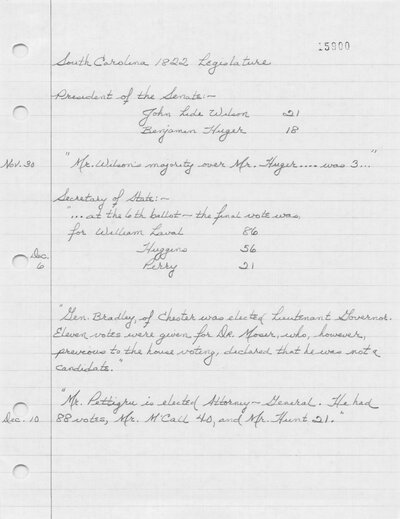 15900
South Carolina 1822 Legislature
President of the Senate:-
John Lide Wilson 21
Benjamin Huger 18
Nov. 30 "Mr. Wilson's majority over Mr. Huger.... was 3..."
Secretary of State:-
"...at the 6th ballot - the final vote was
for William Laval 86
Dec. 6 Huggins 56
Perry 21
"Gen. Bradley, of Chester was elected Lieutenant Governor.
Eleven votes were given for Dr. Moser, who, however,
preveous to the house voting, declared that he was not a
candidate."
"Mr. Pettigru is elected Attorney-General. He had
Dec. 10 88 votes, Mr. M'Call 40, and Mr. Hunt 21."